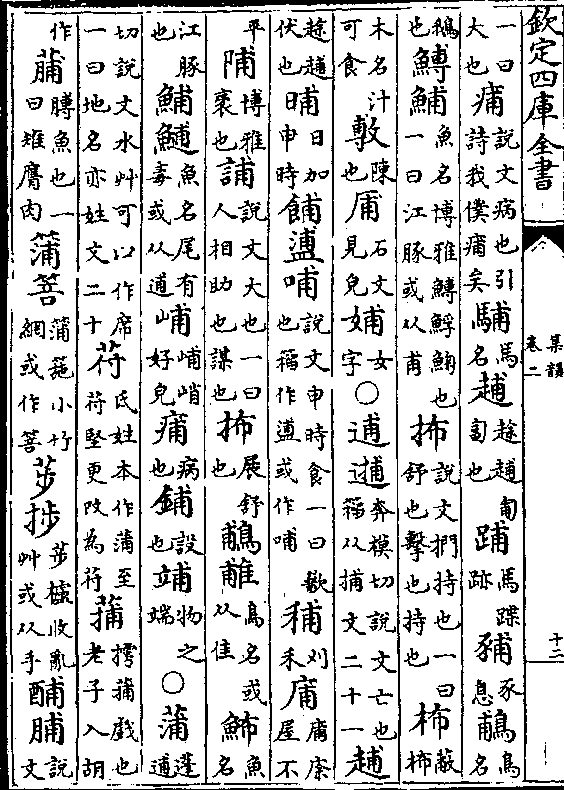 欽定四庫全書
一曰大也痡說文病也引詩我僕痡矣䮒馬名𧻷趚𧻷匍也䠙馬蹀跡豧豕息鵏鳥名
鵝也鱄鯆魚名博雅鱄䱐鯆也一曰江豚或从甫抪說文捫持也一曰舒也擊也持也柨蔽柨
木名汁可食敷陳也石文見皃㛔女字○逋奔模切說文亡也籀从捕文二十一𧻷
趚𧻷伏也晡日加申時餔𥂈哺說文申時食一曰歠也籀作𥂈或作哺秿刈禾庯庯庩屋不
平陠博雅衺也誧說文大也一曰人相助也謀也抪展舒也鵏鳥名或从隹䱛魚名
江豚也鯆魚名尾有毒或从逋峬峬峭好皃痡病也鋪設也物之端○蒲蓬逋
切說文水艸可以作席一曰地名亦姓文二十苻氏姓本作蒲至苻堅更改為苻蒱摴蒱戲也老子入胡
作膊魚也一曰雉膺肉蒲菩蒲箷小竹網或作菩荹捗荹攄收亂艸或从手酺脯說文
集韻
卷二
十二